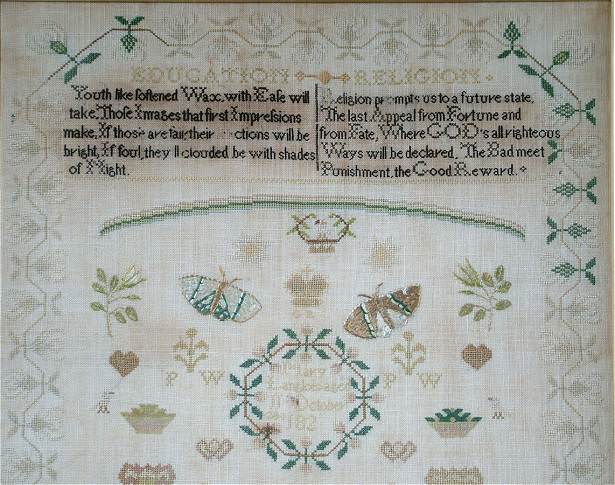 EDUCATION RELIGION
Youth like softened Wax, with Ease will
take, Those Images that first Impressions
make, If those are fair, their ctions will be
bright, If foul, they ll clouded be with shades
of Night.
Religion prompts us to a future state,
The last Appeal from Fortune and
from Fate, Where GOD's all righteous
Ways will be declared, The Bad meet
Punishment, the Good Reward.
P W P W
Mary
11 October